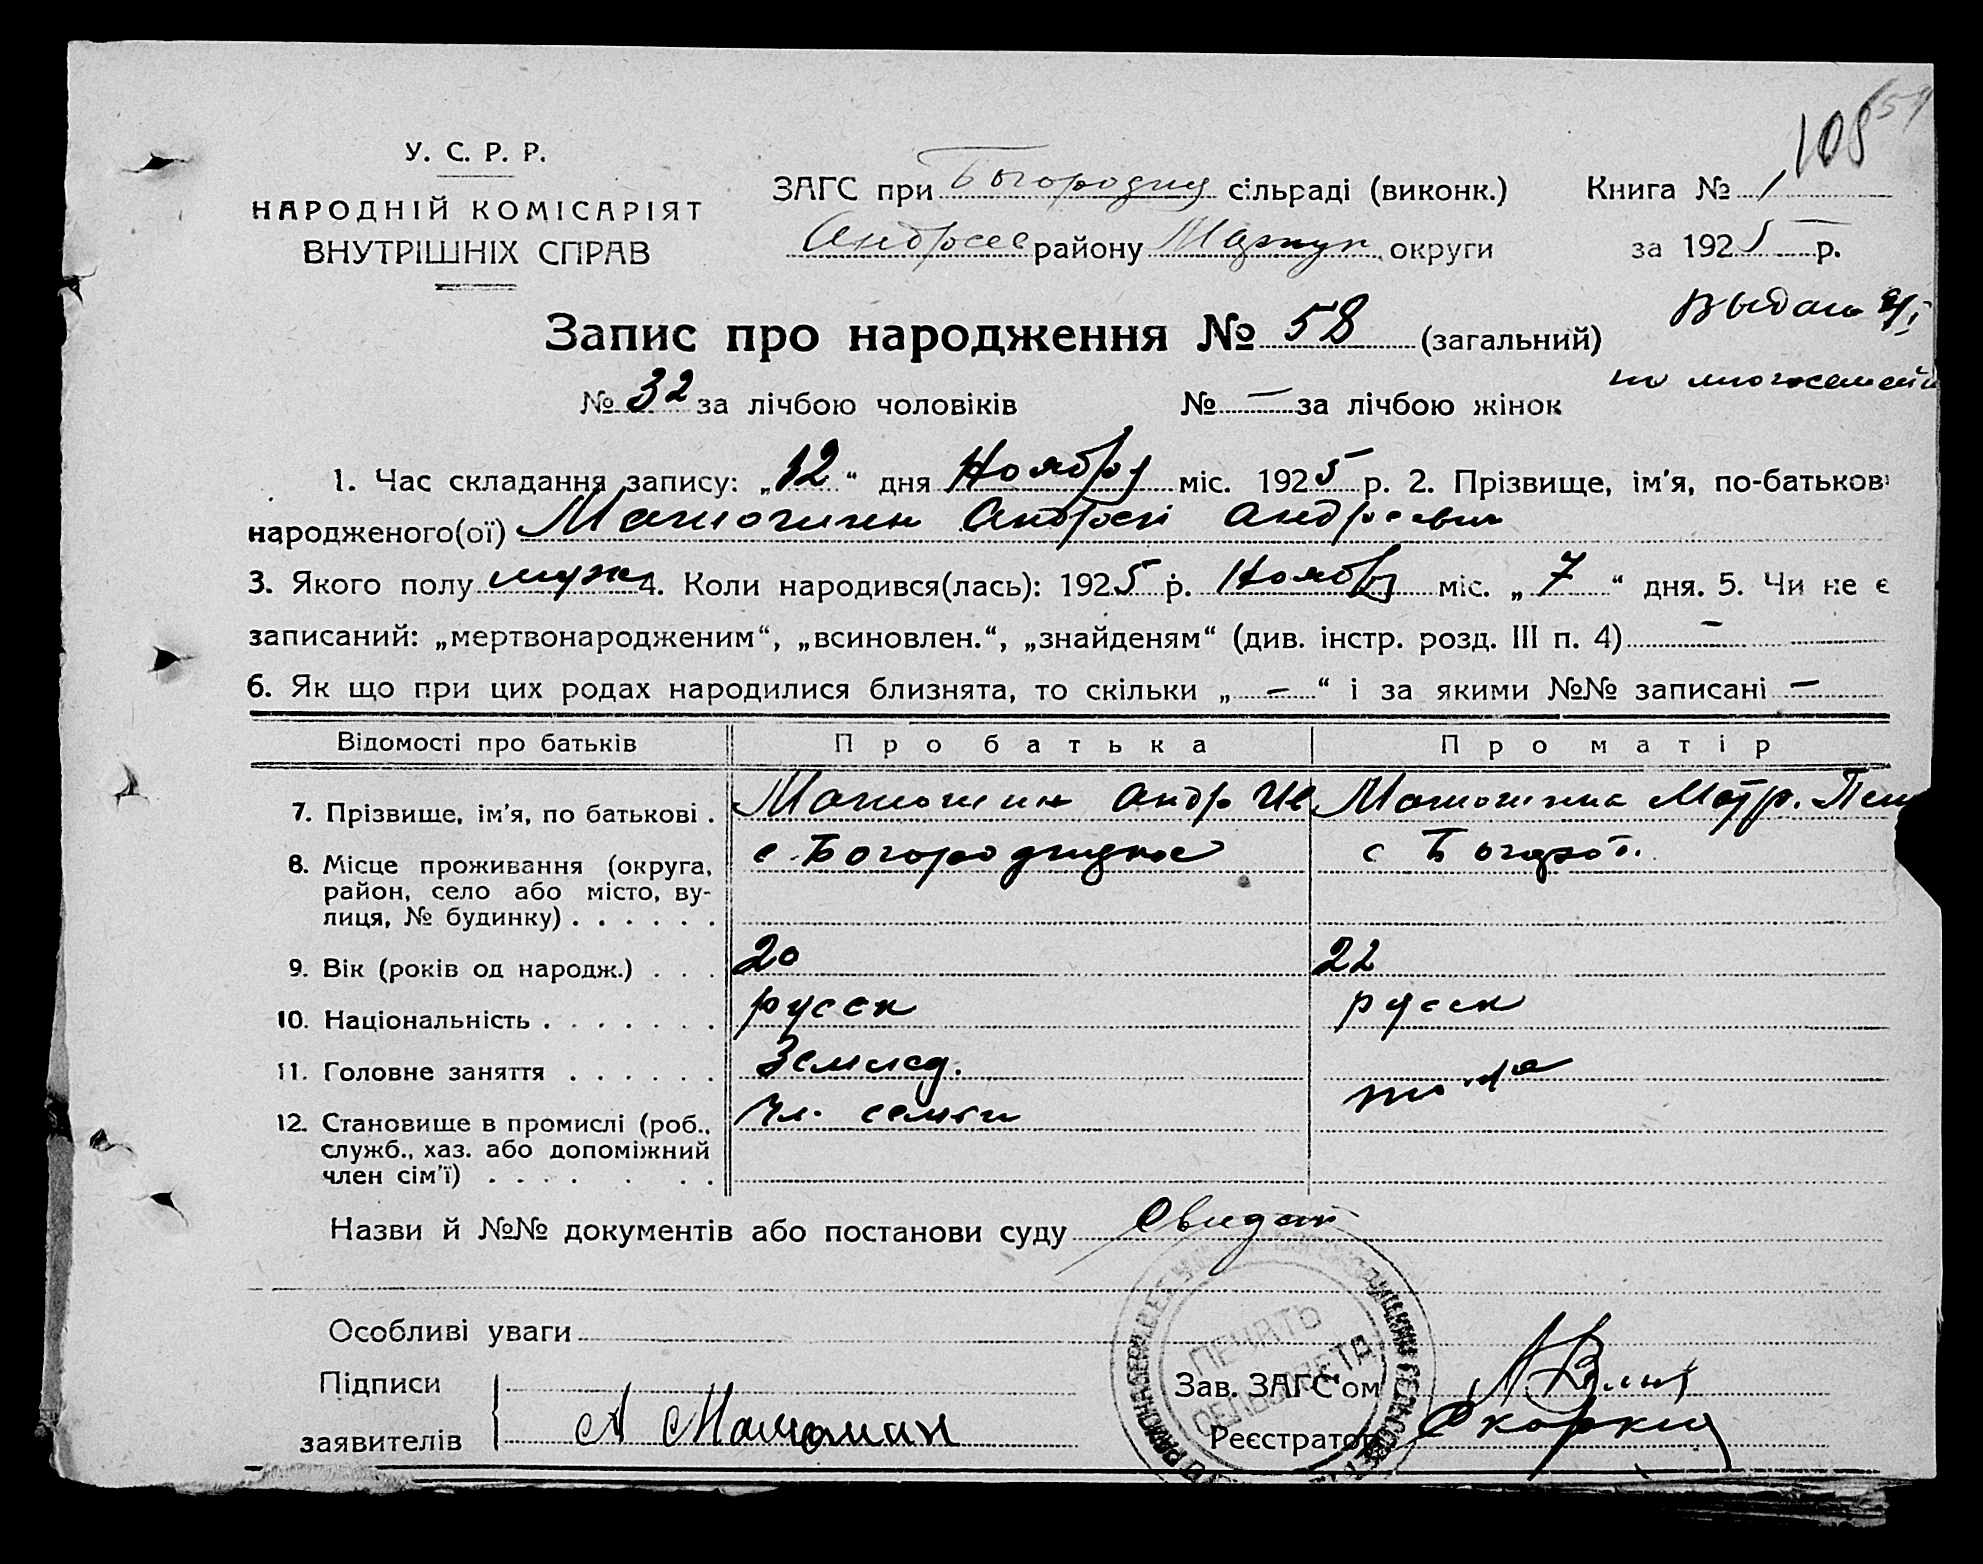 108
У. С. Р. Р.
НАРОДНІЙ КОМІСАРІЯТ
ВНУТРІШНІХ СПРАВ
ЗАГС при Богородиц сільраді (виконк.) Книга № 1
Андреев району округи за 1925 р.
Запис про народження № 58 (загальний)
Выдано
по многосемейн
№ 32 за лічбою чоловіків № — за лічбою жінок
1. Час складання запису: „12“ дня Ноября міс. 1925 р. 2. Прізвище, ім'я, по-батькові
народженого(ої) Матюшин Андрей Андреевич
3. Якого полу муж 4. Коли народився(лась): 1925 р. Ноября міс. „7“ дня. 5. Чи не є
записаний: „мертвонародженим“, „всиновлен.“, „знайденям“ (див. інстр. розд. III п. 4) —
6. Як що при цих родах народилися близнята, то скільки „—“ і за якими №№ записані —
Відомості про батьків Про батька Про матір
7. Прізвище, ім'я, по батькові . Матюшин Андр Ив Матюшина Матр.
8. Місце проживання (округа, район, село або місто, вулиця, № будинку) . . . . . . с. Богородицкое с Богород.
9. Вік (років од народж.) . . . 20 22
10. Національність . . . . . . . русск русск
11. Головне заняття . . . . . . Землед. то-же
12. Становище в промислі (роб., служб., хаз. або допоміжний член сім'ї) . . . . . . . Чл. семьи
Назви й №№ документів або постанови суду
Особливі уваги
Підписи
заявителів А Матюшин
Зав. ЗАГС'ом
Реєстратор
ПЕЧАТЬ
СЕЛЬСОВЕТА